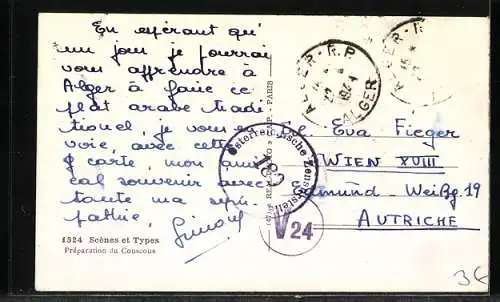 En espérant qu'
un jour je pourrai
vous apprendre à
Alger à faire ce
plat arabe tradi
tionel, je vous en
voie, avec cette
carte, mon ami
cal souvenir avec
toute ma sym-
pathie,
1324 Scènes et Types
Préparation du Couscous
PARIS
ALGER - R.P.
ALGER
ALGER - R
Österreichische Zensurstelle
180
V 24
Eva Fieger
WIEN XVIII
Edmund Weißg. 19
AUTRICHE
3€